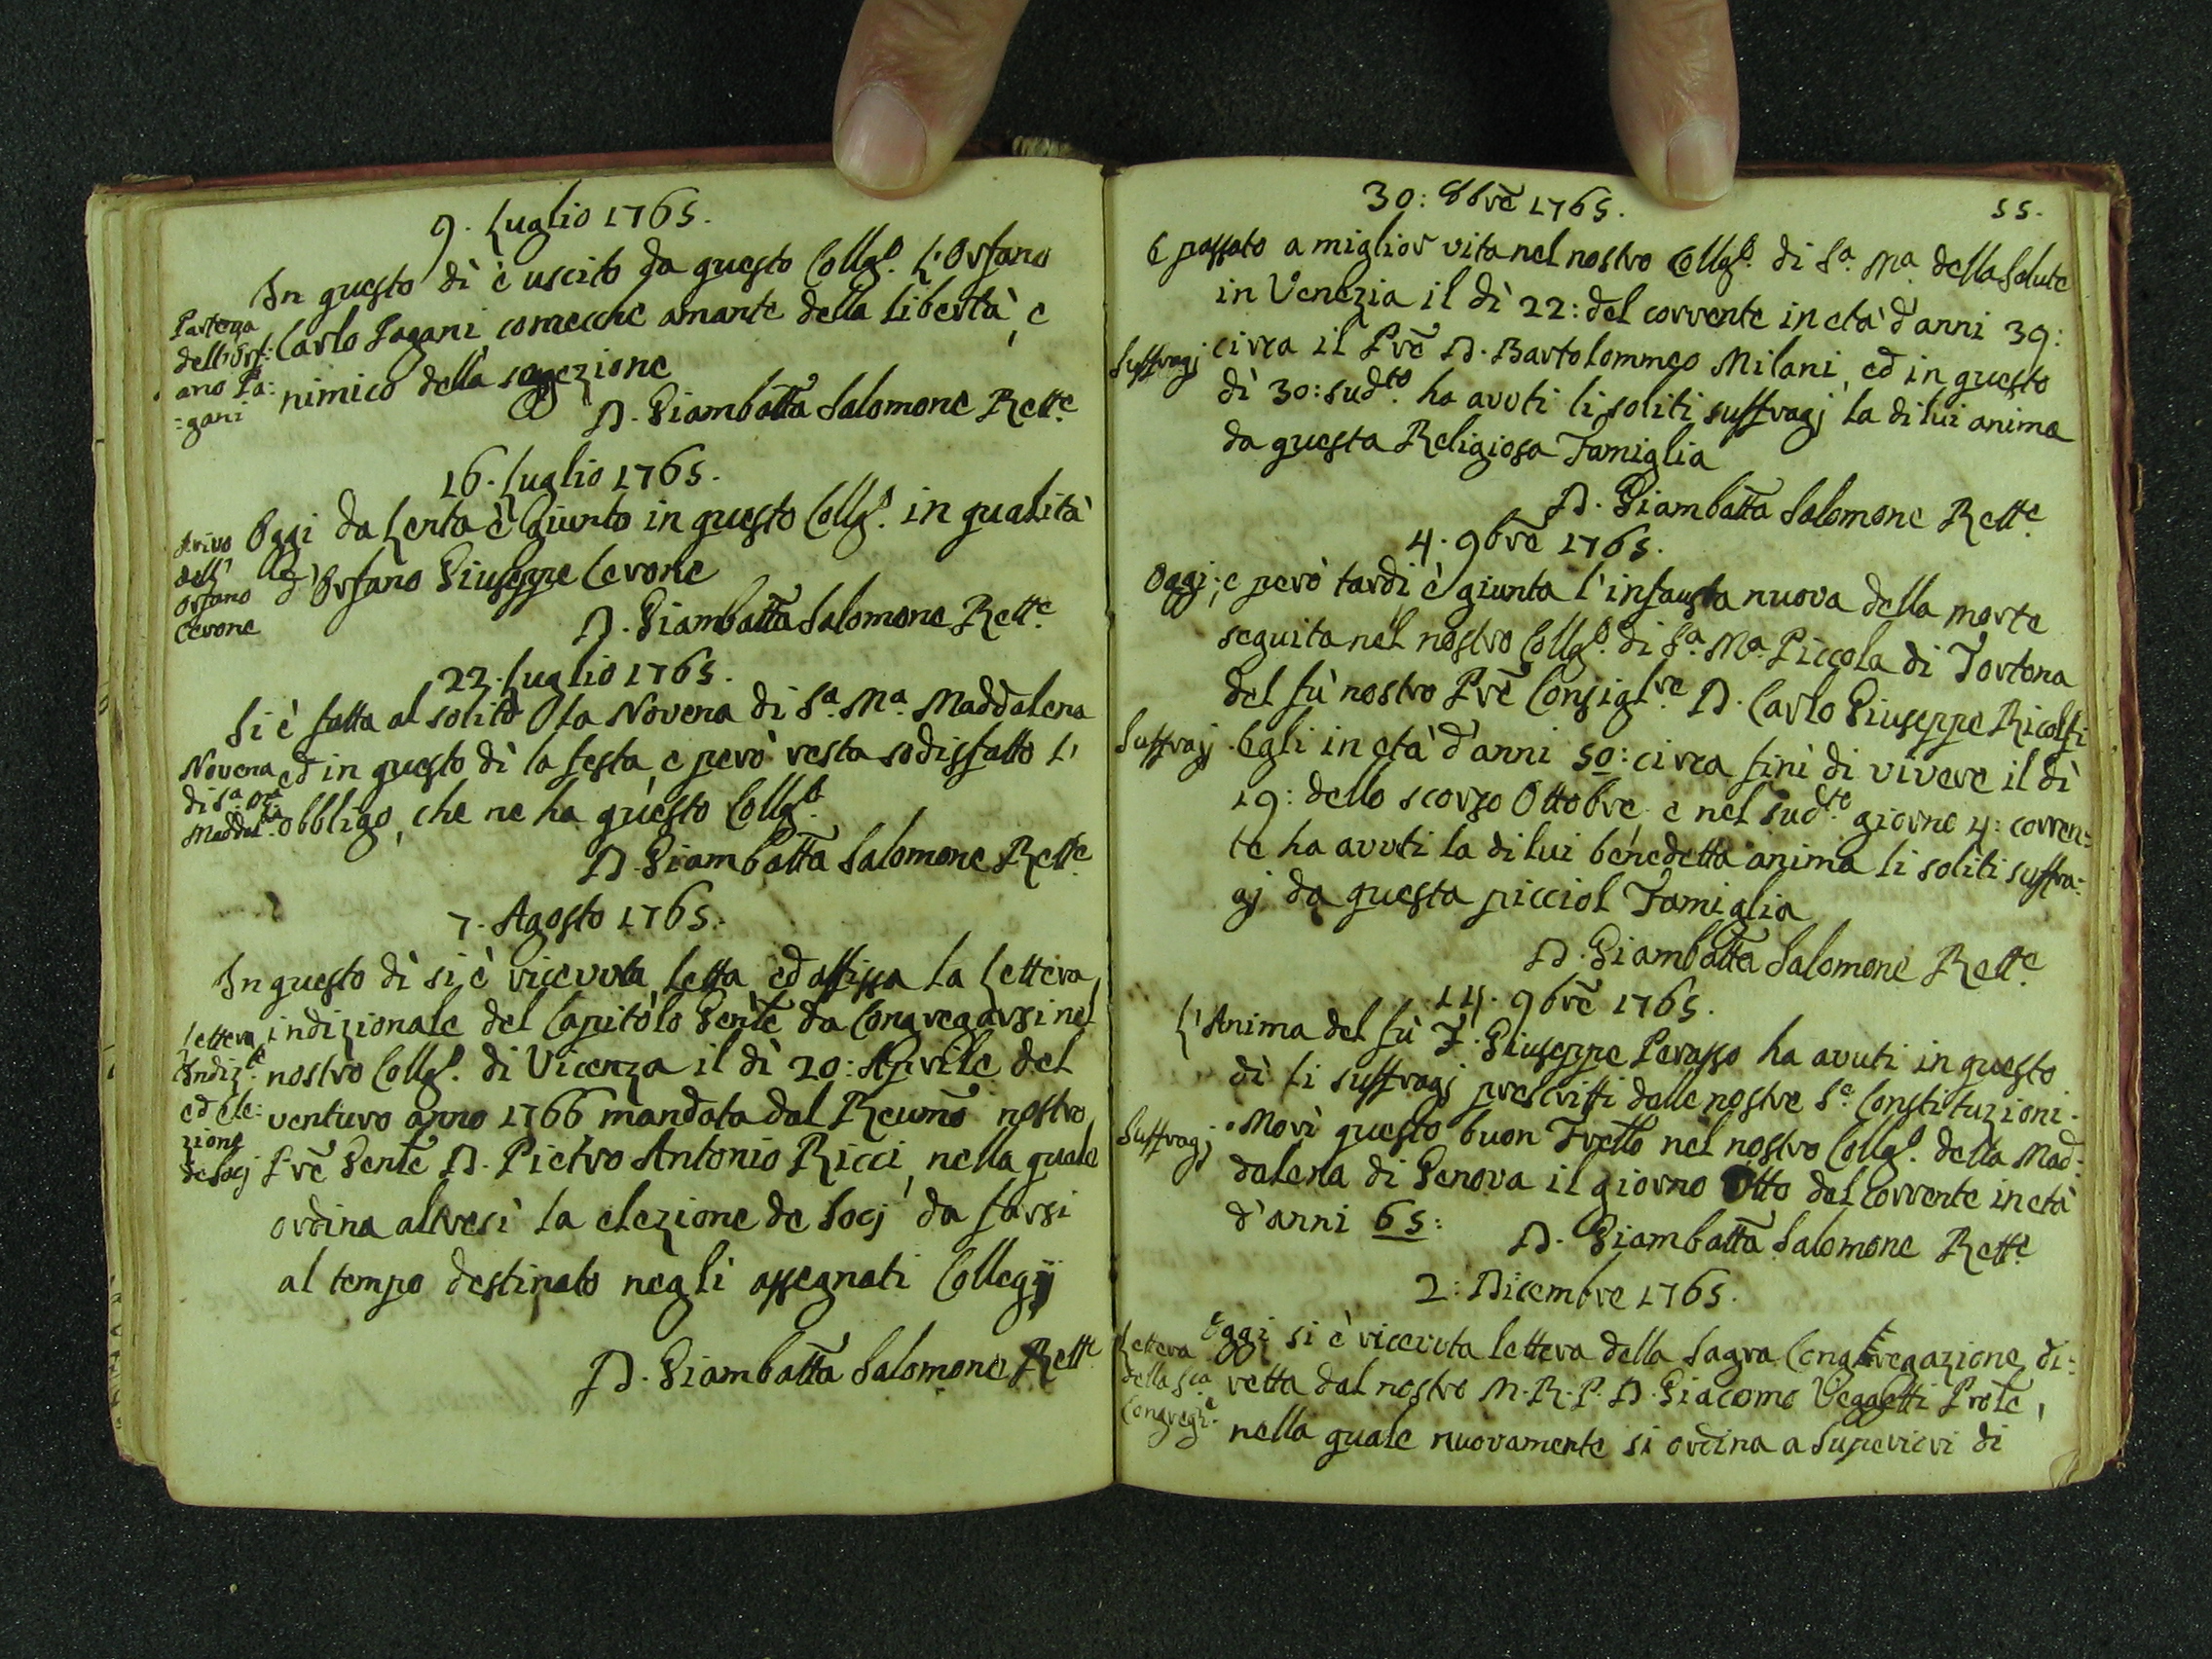 9. Luglio 1765.
In questo dì è uscito da questo Collg.o L'Orfano
Carlo Pagani comecche amante della libertà, e
nimico della soggezione
D. Giambatta Salomone Rett.e
Partenza
dell'Orf:
ano Pa:
:gani
16. Luglio 1765.
Oggi da Lenta è Giunto in questo Collg.o in qualità
d'Orfano Giuseppe Cerone
D. Giambatta Salomone Rett.e
Arivo
dell'
Orfano
Cerone
22. Luglio 1765.
Si è fatta al solito la Novena di S.a M.a Maddalena
ed in questo dì la festa, e però resta sodisfatto l'
obbligo, che ne ha questo Collg.o
D. Giambatta Salomone Rett.e
Novena
di S.a
Maddal.na
7. Agosto 1765.
In questo dì si è ricevuta, letta, ed affissa la Lettera
indizionale del Capitolo Genle da Congregarsi nel
nostro Collg.o di Vicenza il dì 20: Aprile del
venturo anno 1766 mandata dal Reumo nostro
Pre Genle D. Pietro Antonio Ricci, nella quale
ordina altresì la elezione de Socj da farsi
al tempo destinato negli assegnati Collegij
D. Giambatta Salomone Rett.e
Lettera
Indiz.le
ed ele:
zione
de Socj
55.
30: 8bre 1765.
È passato a miglior vita nel nostro Collg.o di S.a M.a della Salute
in Venezia il dì 22: del corrente in età d'anni 39:
circa il Pre D. Bartolommeo Milani, ed in questo
dì 30: sud.to ha avuti li soliti suffragj la di lui anima
da questa Religiosa Famiglia
D. Giambatta Salomone Rett.e
Suffragj
4. 9bre 1765.
Oggi; e però tardi è giunta l'infausta nuova della morte
seguita nel nostro Collg.o di S.a M.a Piccola di Tortona
del fù nostro Pre Consigl.re D. Carlo Giuseppe Ricolfi
Egli in età d'anni 50: circa finì di vivere il dì
19: dello scorso Ottobre e nel sud.to giorno 4: corren:
te ha avuti la di lui benedetta anima li soliti suffra:
gj da questa picciol Famiglia
D. Giambatta Salomone Rett.e
Suffragj
14. 9bre 1765.
L'Anima del fù F. Giuseppe Perasso ha avuti in questo
dì li suffragj prescritti dalle nostre S.e Constituzioni.
Morì questo buon Frello nel nostro Collg.o della Mad:
dalena di Genova il giorno Otto del Corrente in età
d'anni 65:
D. Giambatta Salomone Rett.e
Suffragj
2: Dicembre 1765.
Oggi si è ricevuta lettera della Sagra Congregazione di:
retta dal nostro M. R. P. D. Giacomo Vegaletti Prole,
nella quale nuovamente si ordina a Superiori di
Lettera
della S.ra
Congreg.e